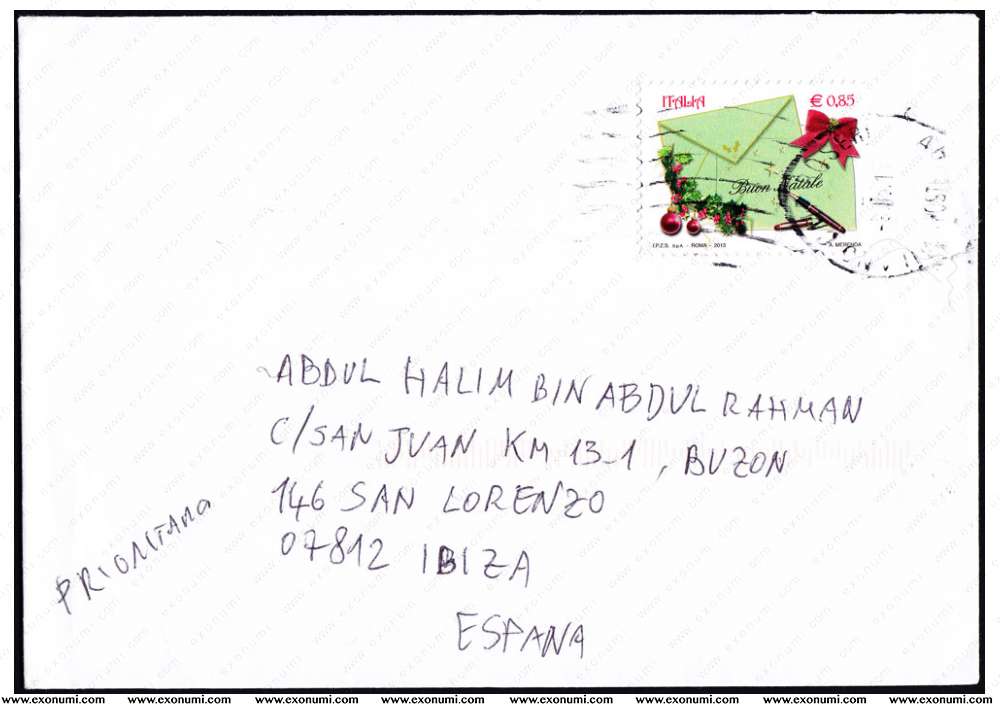 ITALIA € 0,85
Buon Natale
I.P.Z.S. S.p.A. - ROMA - 2013 A. MERENDA
ABDUL HALIM BIN ABDUL RAHMAN
C/SAN JUAN KM 13-1, BUZON
146 SAN LORENZO
07812 IBIZA
ESPANA
PRIORITARIA
www.exonumi.com www.exonumi.com www.exonumi.com www.exonumi.com www.exonumi.com www.exonumi.com www.exonumi.com www.exonumi.com